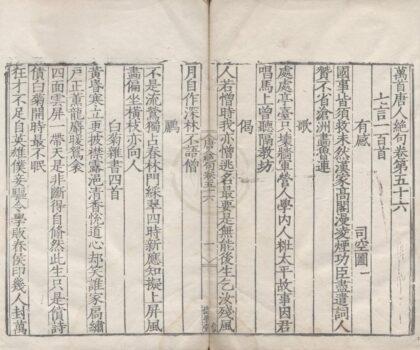 萬首唐人絕句卷第五十六
七言一百首
有感 司空圖
國事皆須救未然漢家高閣漫凌煙功臣盡遣詞人
贊不省滄洲畫魯連
歌
處處亭臺只壞牆軍營人學內人粧太平故事因君
唱馬上曾聽隔教坊
偈
人若憎時我亦憎逃名最要是無能後生乞汝殘風
唐絕句卷五十六
月自作深林不語僧
不是流鶯獨占春林間綵翠四時新應知擬上屏風
畫偏坐橫枝亦向人
白菊雜書四首
黃昏寒立更披襟露浥清香悅道心却笑誰家扃繡
戶正熏龍麝暖鴛衾
四面雲屏一帶天是非斷得自翛然此生只是償詩
債白菊開時最不眠
狂才不足自英雄僕妾驅令學販舂侯印幾人封萬